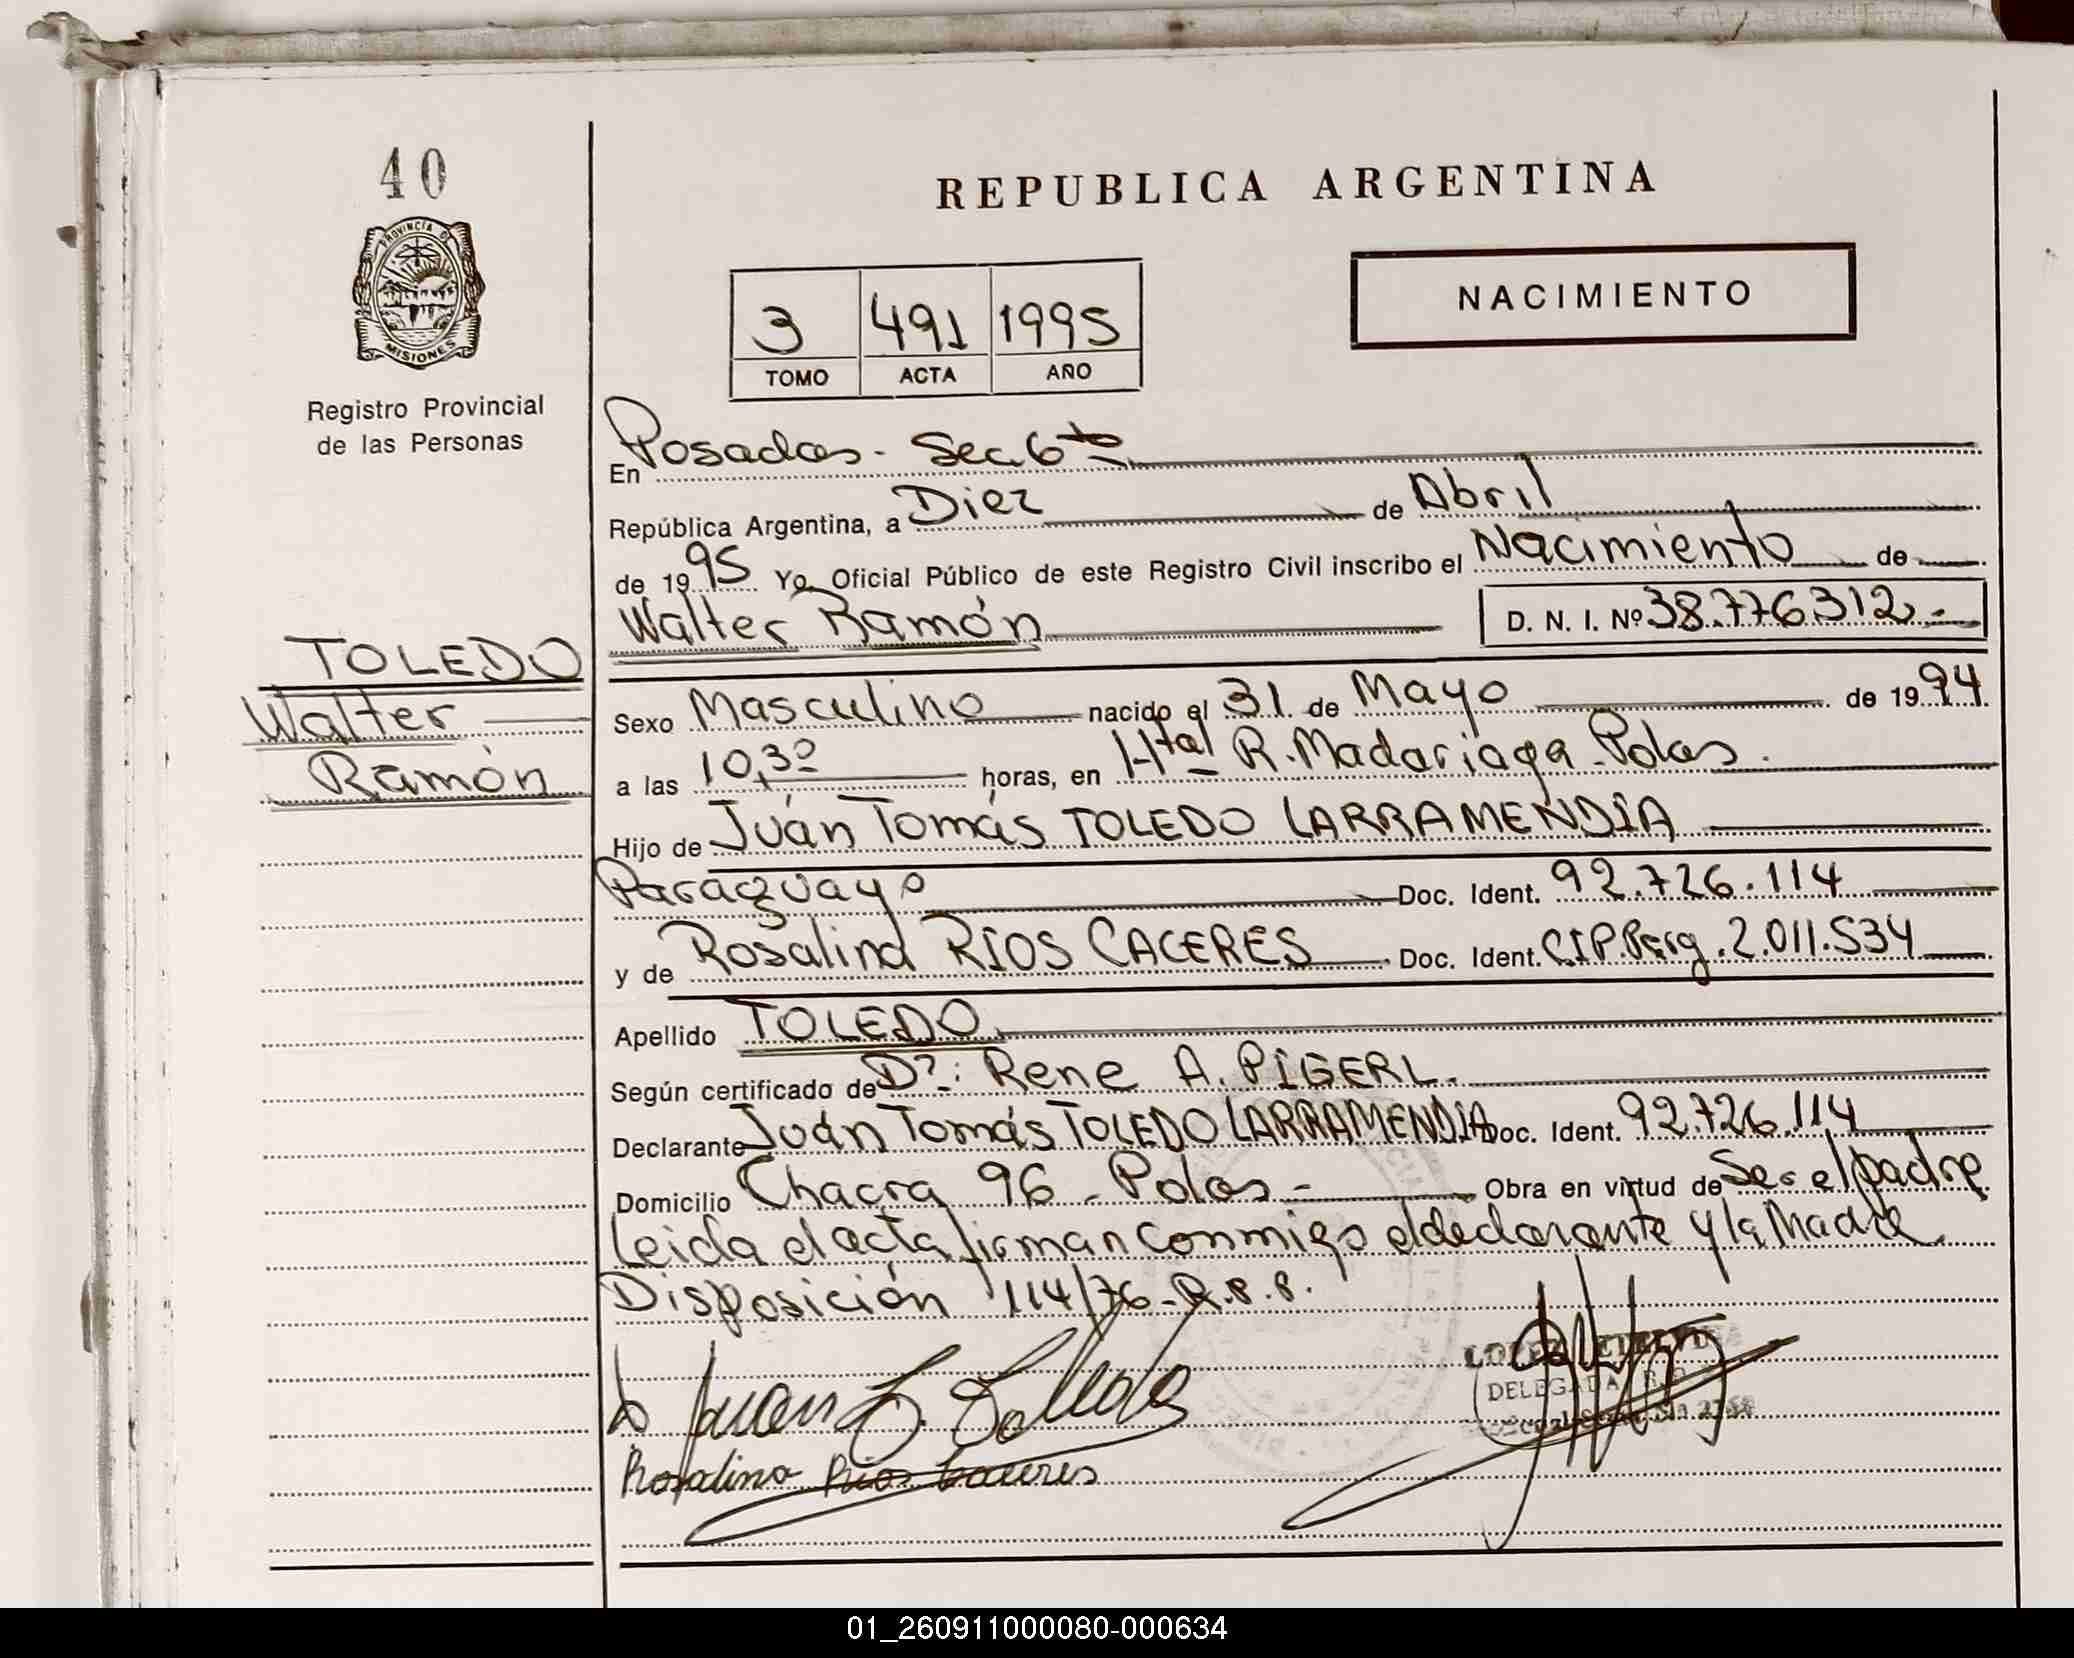 40
PROVINCIA DE
MISIONES
Registro Provincial
de las Personas
TOLEDO
Walter
Ramón
REPUBLICA ARGENTINA
NACIMIENTO
3 491 1995
TOMO ACTA AÑO
En Posadas - Sec. 6ta
República Argentina, a Diez de Abril
de 1995 Yo Oficial Público de este Registro Civil inscribo el Nacimiento de
Walter Ramón D. N. I. Nº 38.776.312.-
Sexo Masculino nacido el 31 de Mayo de 1994
a las 10,30 horas, en Htal R. Madariaga - Pdas.
Hijo de Juán Tomás TOLEDO LARRAMENDIA
Paraguayo Doc. Ident. 92.726.114
y de Rosalina RIOS CACERES Doc. Ident. C.I.P. Parg. 2.011.534
Apellido TOLEDO
Según certificado de Dr.: Rene A. PIGERL.
Declarante Juán Tomás TOLEDO LARRAMENDIA Doc. Ident. 92.726.114
Domicilio Chacra 96 - Pdas - Obra en virtud de Ser el padre
Leida el acta firman conmigo el declarante y la Madre
Disposición 114/76 -
Juan T. Toledo
LOPEZ
DELEGADA
Rosalina Rios Caceres
01_260911000080-000634